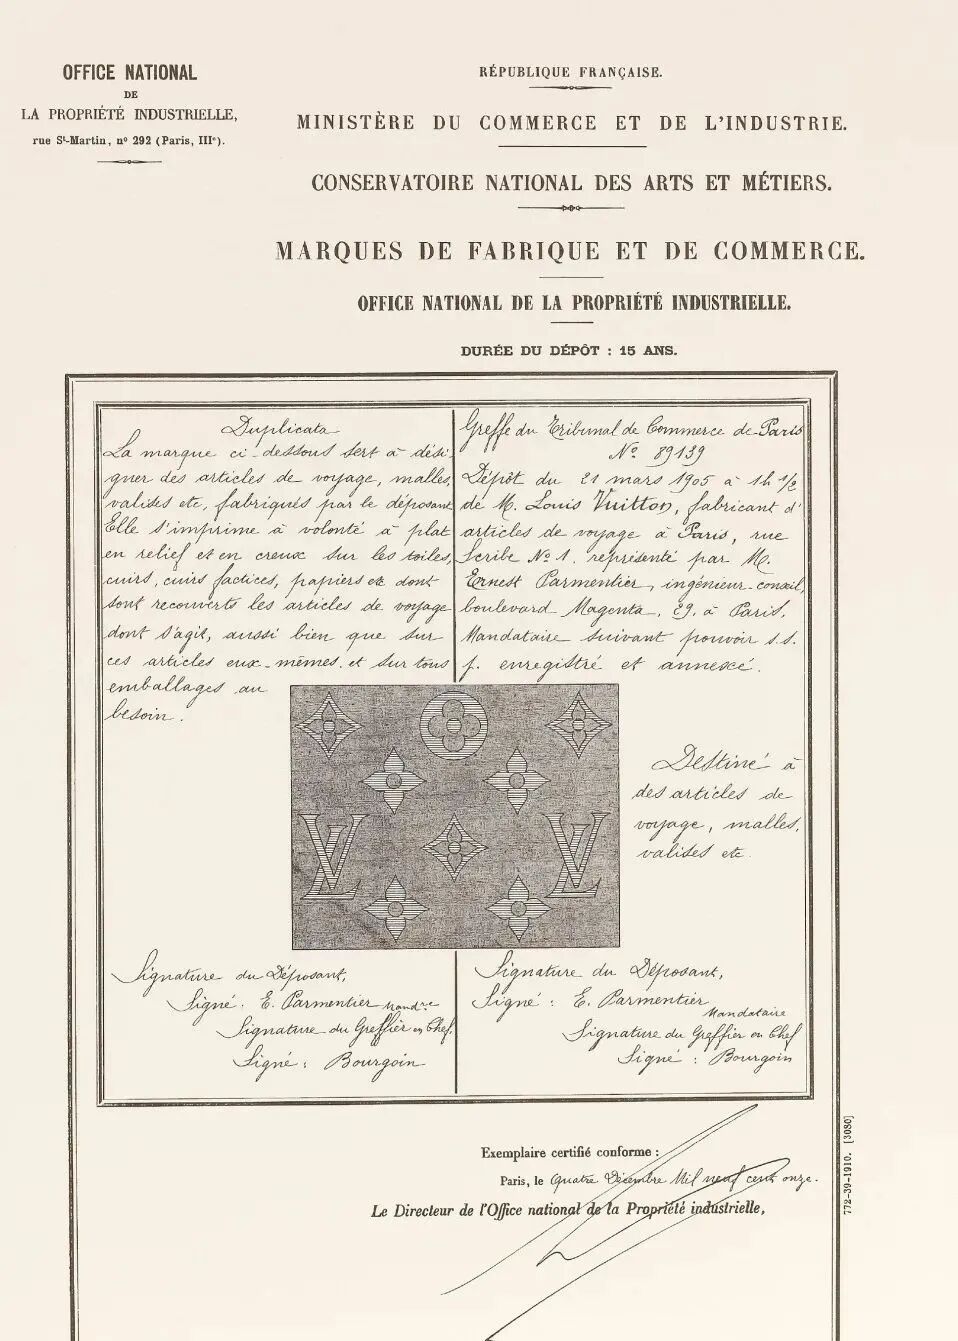 OFFICE NATIONAL
DE
LA PROPRIÉTÉ INDUSTRIELLE,
rue St-Martin, n° 292 (Paris, IIIe).
RÉPUBLIQUE FRANÇAISE.
MINISTÈRE DU COMMERCE ET DE L'INDUSTRIE.
CONSERVATOIRE NATIONAL DES ARTS ET MÉTIERS.
MARQUES DE FABRIQUE ET DE COMMERCE.
OFFICE NATIONAL DE LA PROPRIÉTÉ INDUSTRIELLE.
DURÉE DU DÉPÔT : 15 ANS.
Duplicata
La marque ci-dessous sert à dési-
gner des articles de voyage, malles,
valises etc, fabriqués par le déposant
Elle s'imprime à volonté à plat
en relief et en creux sur les toiles,
cuirs, cuirs factices, papiers etc dont
sont recouverts les articles de voyage
dont s'agit, aussi bien que sur
ces articles eux-mêmes, et sur tous
emballages au
besoin.
Greffe du Tribunal de Commerce de Paris
N° 89139
Dépôt du 21 mars 1905 à 1h 1/2
de M. Louis Vuitton, fabricant d'
articles de voyage à Paris, rue
Scribe N° 1. représenté par M.
Ernest Parmentier, ingénieur-conseil,
boulevard Magenta, 29, à Paris,
Mandataire suivant pouvoir s.s.
p. enregistré et annexé.
LV
LV
Destiné à
des articles de
voyage, malles,
valises etc.
Signature du Déposant,
Signé. E. Parmentier Mandre
Signature du Greffier en Chef.
Signé : Bourgoin
Signature du Déposant,
Signé : E. Parmentier
Mandataire
Signature du Greffier en Chef
Signé : Bourgoin
Exemplaire certifié conforme :
Paris, le Quatre Décembre Mil neuf cent onze.
Le Directeur de l'Office national de la Propriété industrielle,
772-39-1910. [3080]